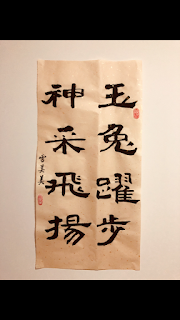 玉兔躍步
神采飛揚